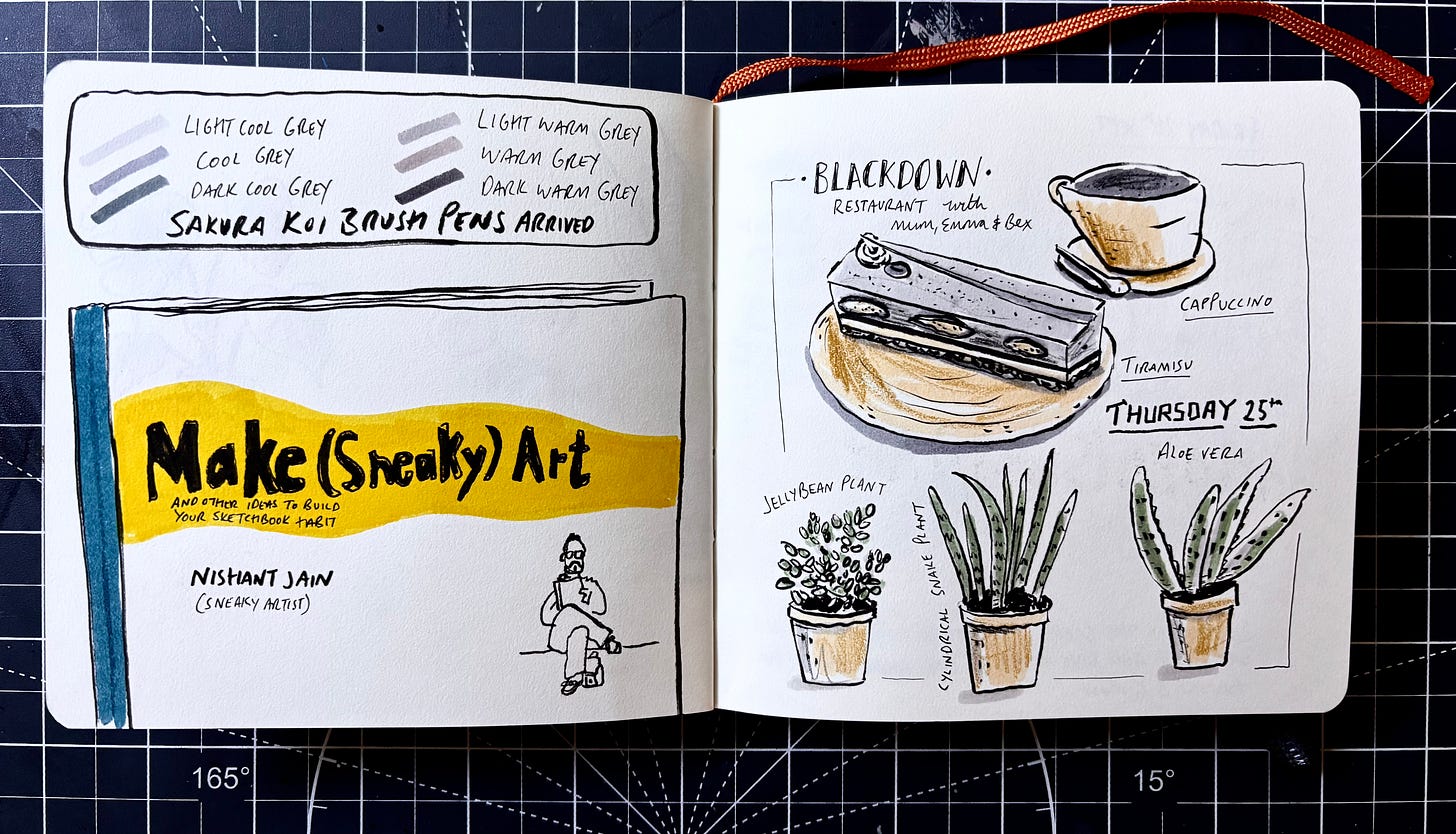 LIGHT COOL GREY
COOL GREY
DARK COOL GREY
LIGHT WARM GREY
WARM GREY
DARK WARM GREY
SAKURA KOI BRUSH PENS ARRIVED
Make (Sneaky) Art
AND OTHER IDEAS TO BUILD
YOUR SKETCHBOOK HABIT
NISHANT JAIN
(SNEAKY ARTIST)
·BLACKDOWN·
RESTAURANT with
mum, Emma & Bex
CAPPUCCINO
TIRAMISU
THURSDAY 25th
ALOE VERA
JELLYBEAN PLANT
CYLINDRICAL SNAKE PLANT
165°
15°